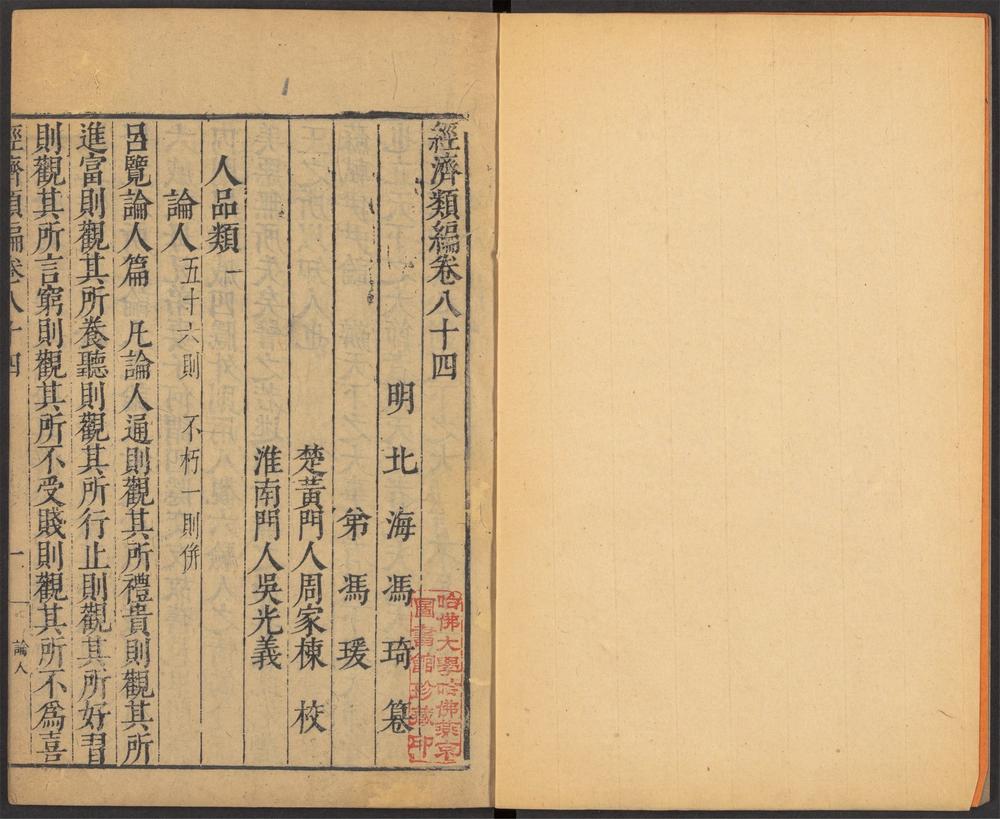 經濟類編卷八十四
明北海馮琦纂
弟馮瑗
楚黃門人周家棟校
淮南門人吳光義
人品類一
論人五十六則 不朽一則併
呂覽論人篇 凡論人通則觀其所禮貴則觀其所
進富則觀其所養聽則觀其所行止則觀其所好習
則觀其所言窮則觀其所不受賤則觀其所不爲喜
經濟類編卷八十四 一 論人
哈佛大學哈佛燕京
圖書館珍藏印